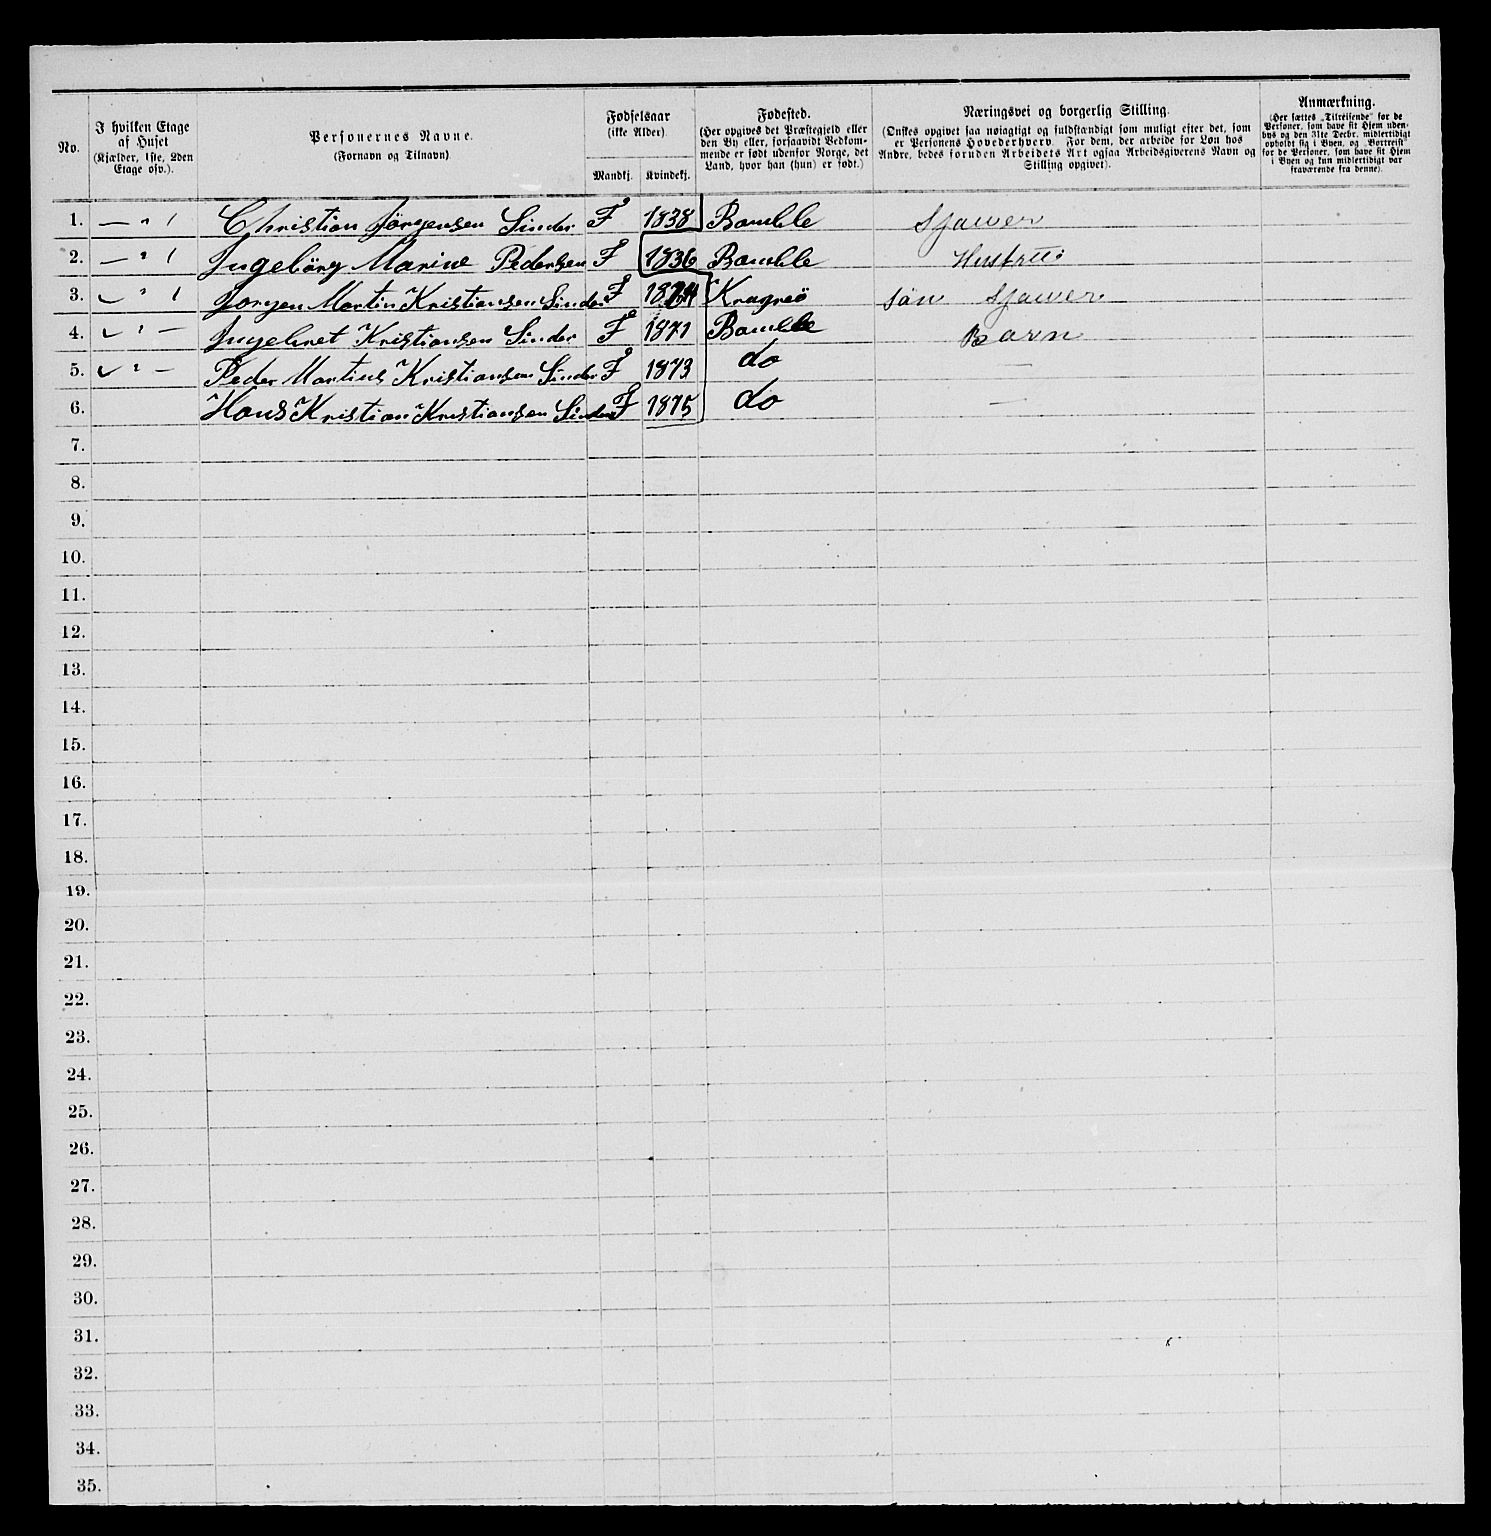 No.
I hvilken Etage af Huset
(Kjælder, 1ste, 2den Etage osv.).
Personernes Navne.
(Fornavn og Tilnavn)
Fødselsaar
(ikke Alder).
Mandkj. Kvindekj.
Fødested.
(Her opgives det Præstegjeld eller
den By eller, forsaavidt Vedkom-
mende er født udenfor Norge, det
Land, hvor han (hun) er født.)
Næringsvei og borgerlig Stilling.
(Ønskes opgivet saa nøiagtigt og fuldstændigt som muligt efter det, som
er Personens Hovederhverv. For dem, der arbeide for Løn hos
Andre, bedes foruden Arbeidets Art ogsaa Arbeidsgiverens Navn og
Stilling opgivet).
Anmærkning.
(Her sættes „Tilreisende" for de
Personer, som have sit Hjem uden-
bys og den 31te Decbr. midlertidigt
opholdt sig i Byen, og „Bortreist"
for de Personer, som have sit Hjem
i Byen og kun midlertidigt var
fraværende fra denne).
1. — " 1 Christian Jörgensen Sinder F 1838 Bamble Sjawer
2. — " 1 Ingebörg Marine Pedersen F 1836 Bamble Hustru
3. " 1 Jorgen Martin Kristiansen Sinder F Kragreö sön Sjawer
4. " — Kristiansen Sinder F 1871 Bamble Barn
5. " — Peder Martius Kristiansen Sinder F 1873 do —
6. Hans Kristian Kristiansen Sinder F 1875 do —
7.
8.
9.
10.
11.
12.
13.
14.
15.
16.
17.
18.
19.
20.
21.
22.
23.
24.
25.
26.
27.
28.
29.
30.
31.
32.
33.
34.
35.